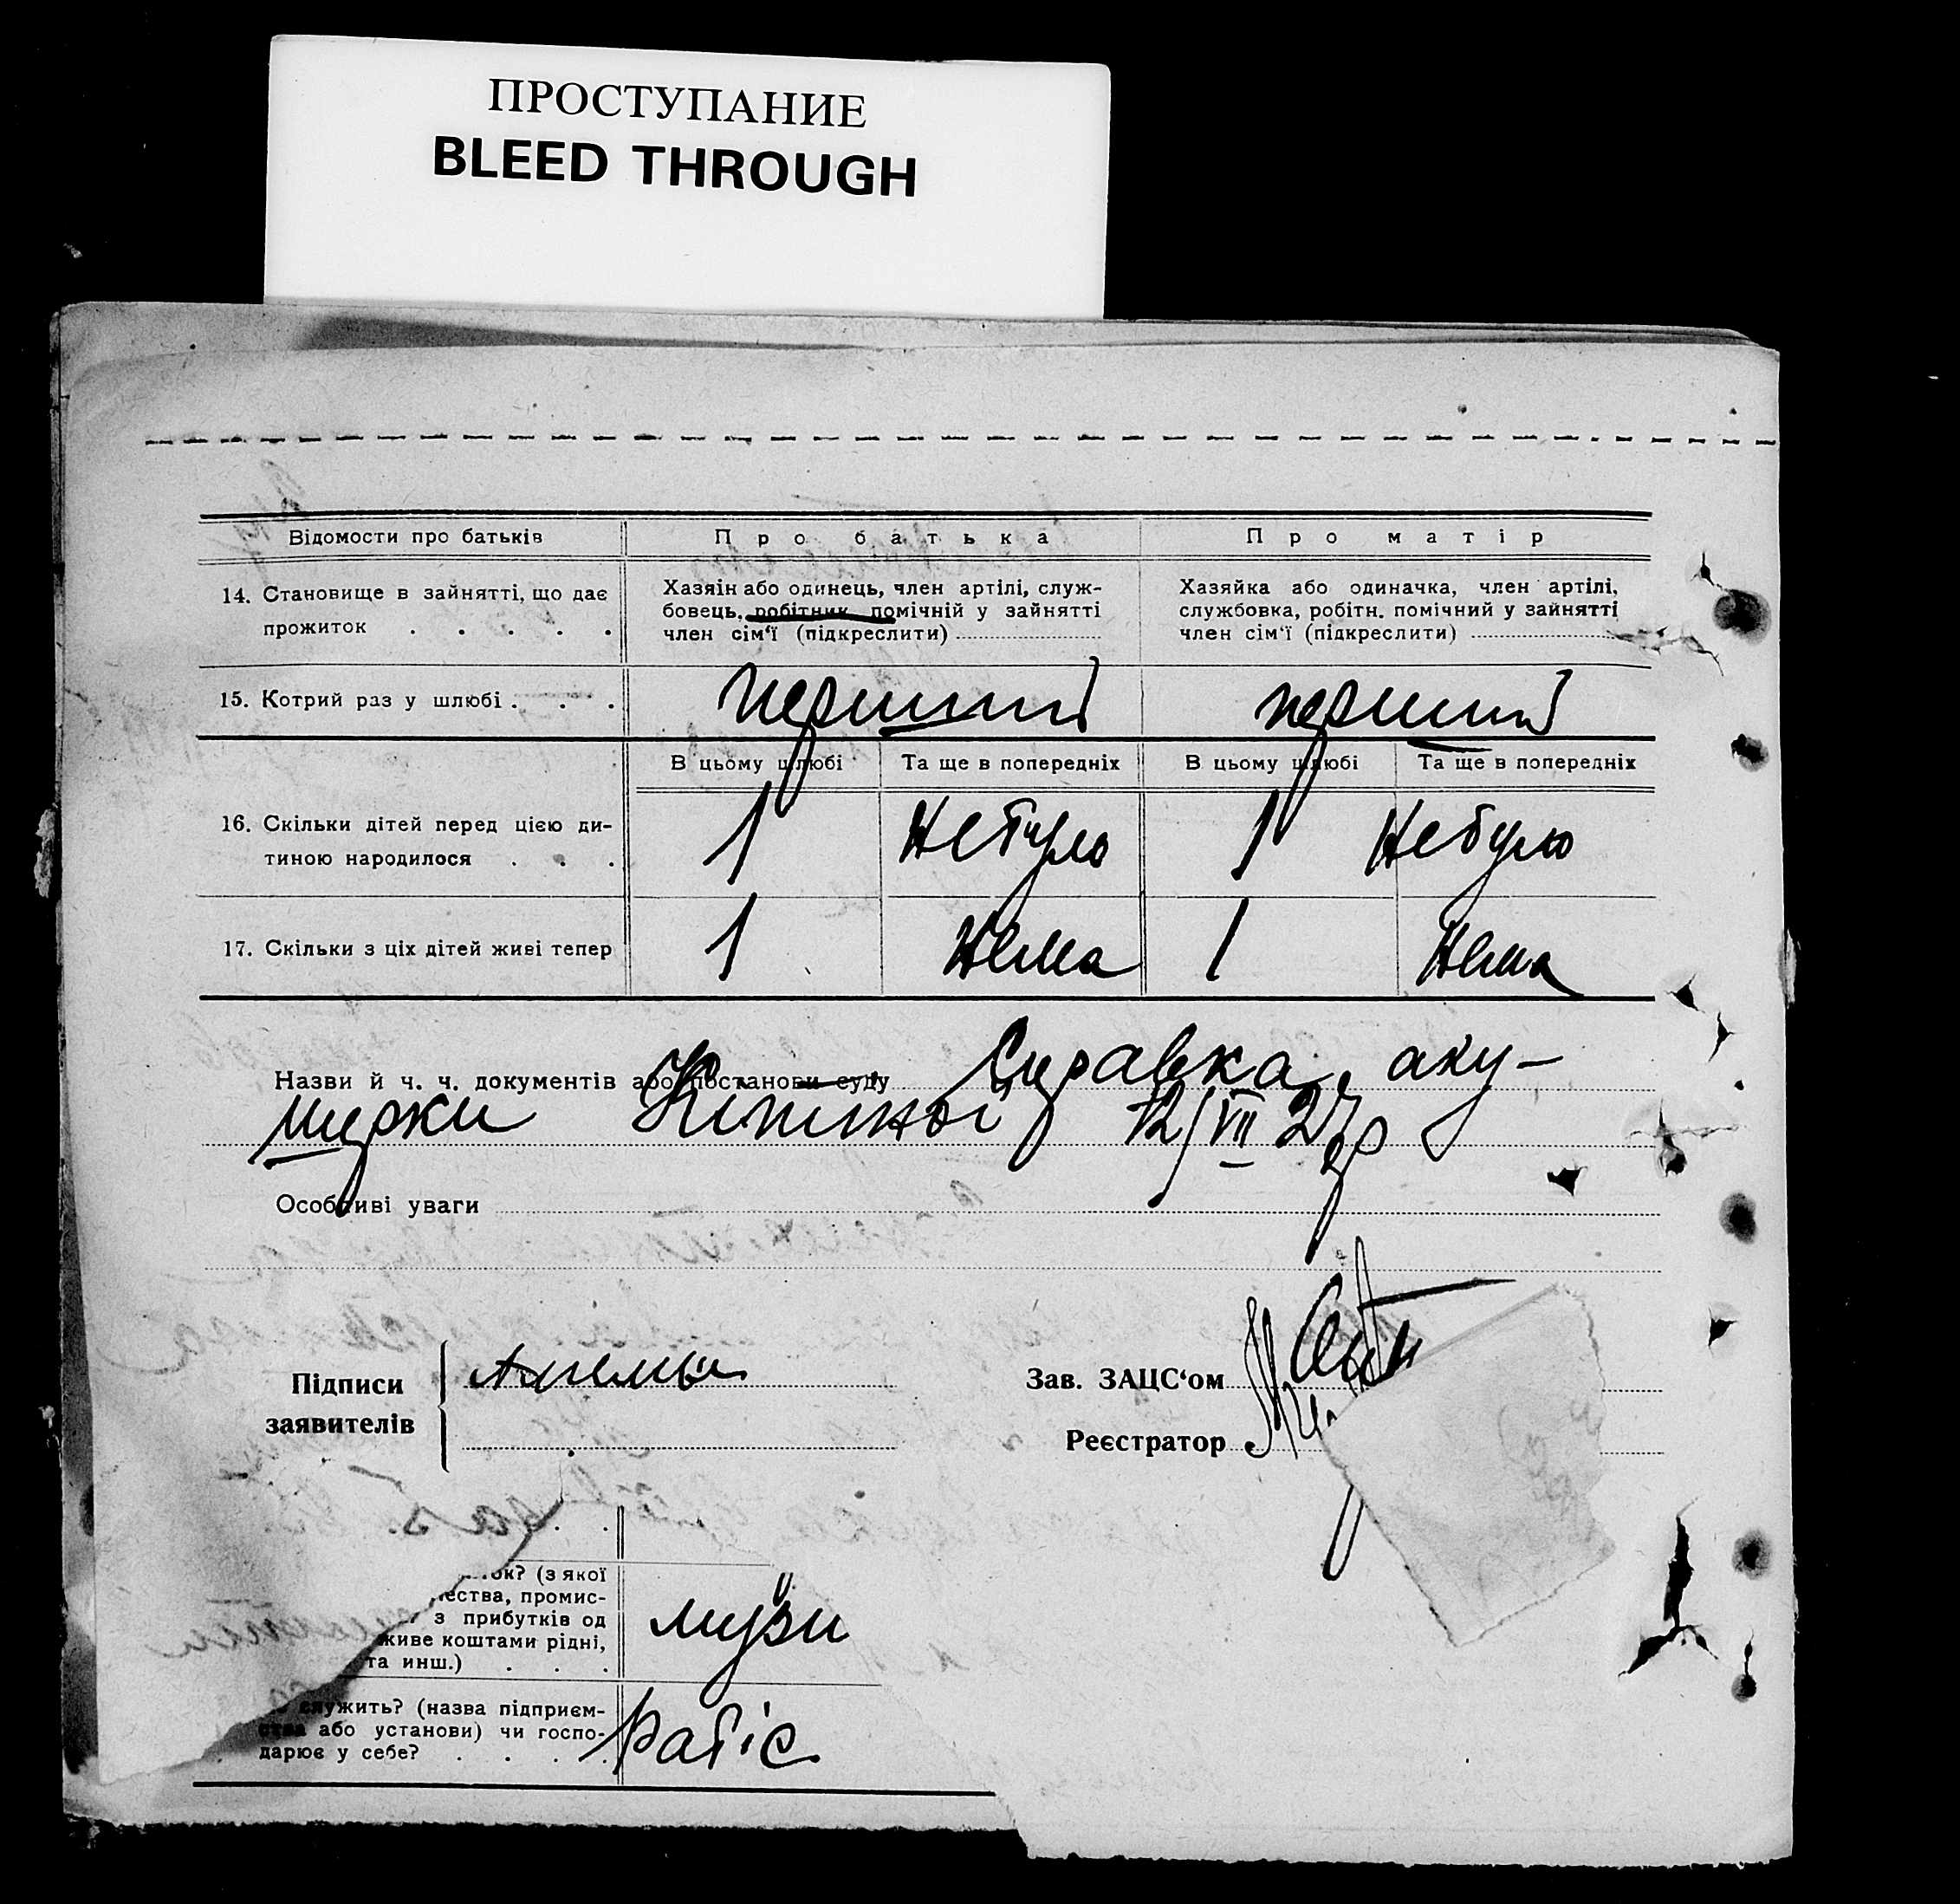 ПРОСТУПАНИЕ
BLEED THROUGH
Відомости про батьків
Про батька
Про матір
14. Становище в зайнятті, що дає
прожиток . . . . .
Хазяін або одинець, член артілі, служ-
бовець, робітник, помічній у зайнятті
член сім'ї (підкреслити)
Хазяйка або одиначка, член артілі,
службовка, робітн. помічний у зайнятті
член сім'ї (підкреслити)
15. Котрий раз у шлюбі . . .
перший
перший
В цьому шлюбі
Та ще в попередніх
В цьому шлюбі
Та ще в попередніх
16. Скільки дітей перед цією ди-
тиною народилося . . .
1
Небуло
1
Небуло
17. Скільки з ціх дітей живі тепер
1
Нема
1
Нема
Назви й ч. ч. документів або постанови суду Справка аку-
шерки 12/VII 27р
Особливі уваги
Підписи
заявителів
Зав. ЗАЦС'ом
Реєстратор
ок? (з якої
ества, промис-
з прибутків од
живе коштами рідні,
та инш.) . . .
музи
служить? (назва підприєм-
ства або установи) чи госпо-
дарює у себе? . . . .
Рабіс